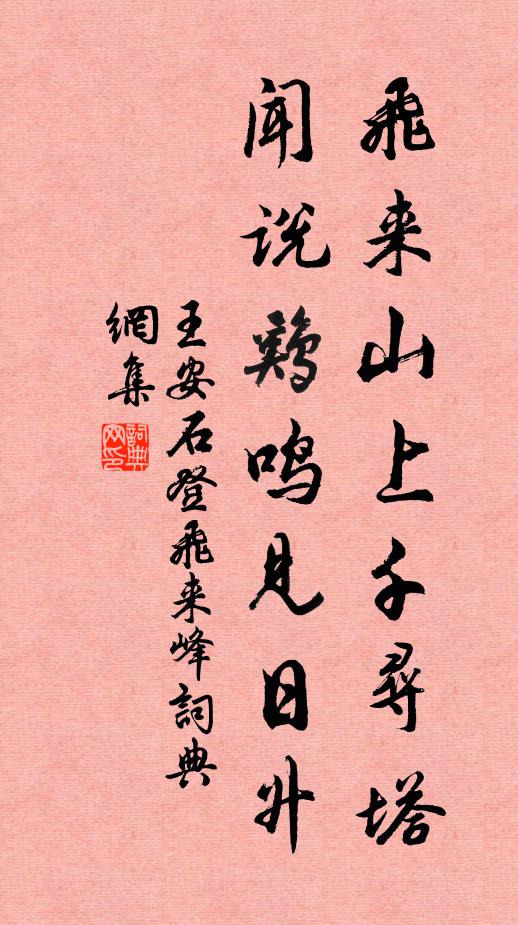 飛来山上千尋塔
闻说鷄鸣見日升
王安石登飛来峰詞典
網集
詞典网印